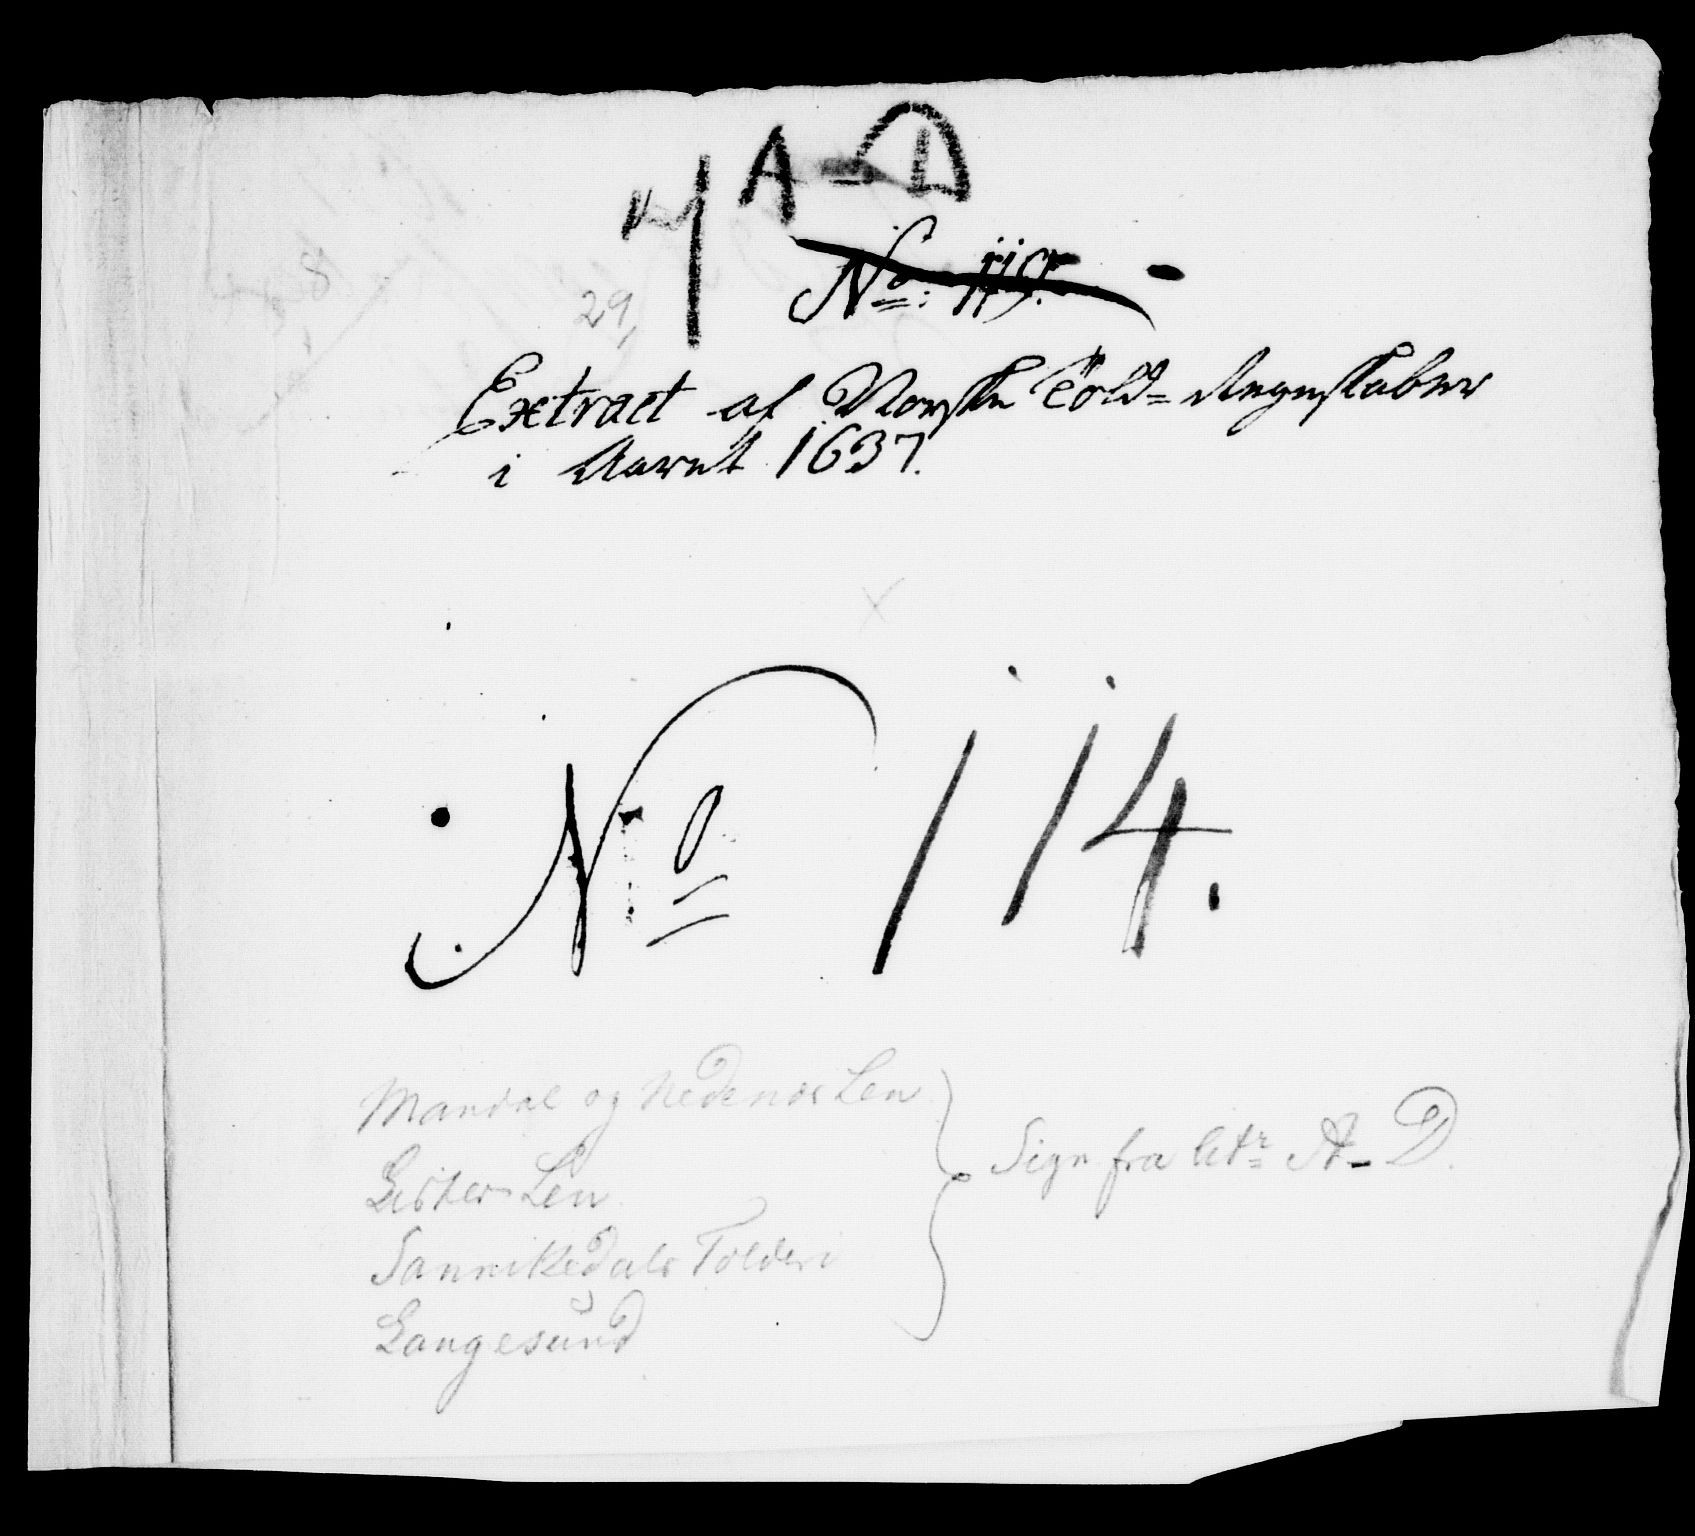 4 A-D
No: 119.
29
Extract af Norske Told= Regnskaber
i Aaret 1637.
No 114.
Mandal og Nedenes Len
Lister Len
Sannikedals Tolderi
Langesund
Sign fra litr A-D.